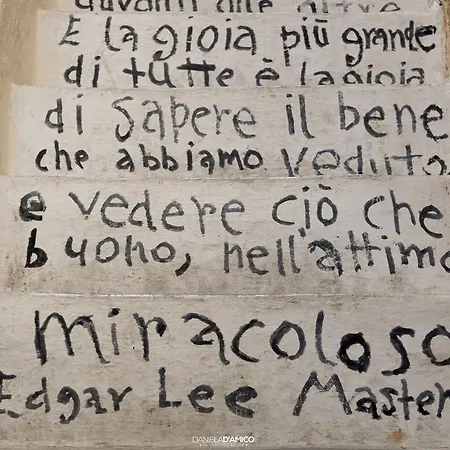 davanti alle altre
E la gioia più grande
di tutte è la gioia
di sapere il bene
che abbiamo veduto
e vedere ciò che
buono, nell'attimo
miracoloso
Edgar Lee Master
DANIELAD'AMICO